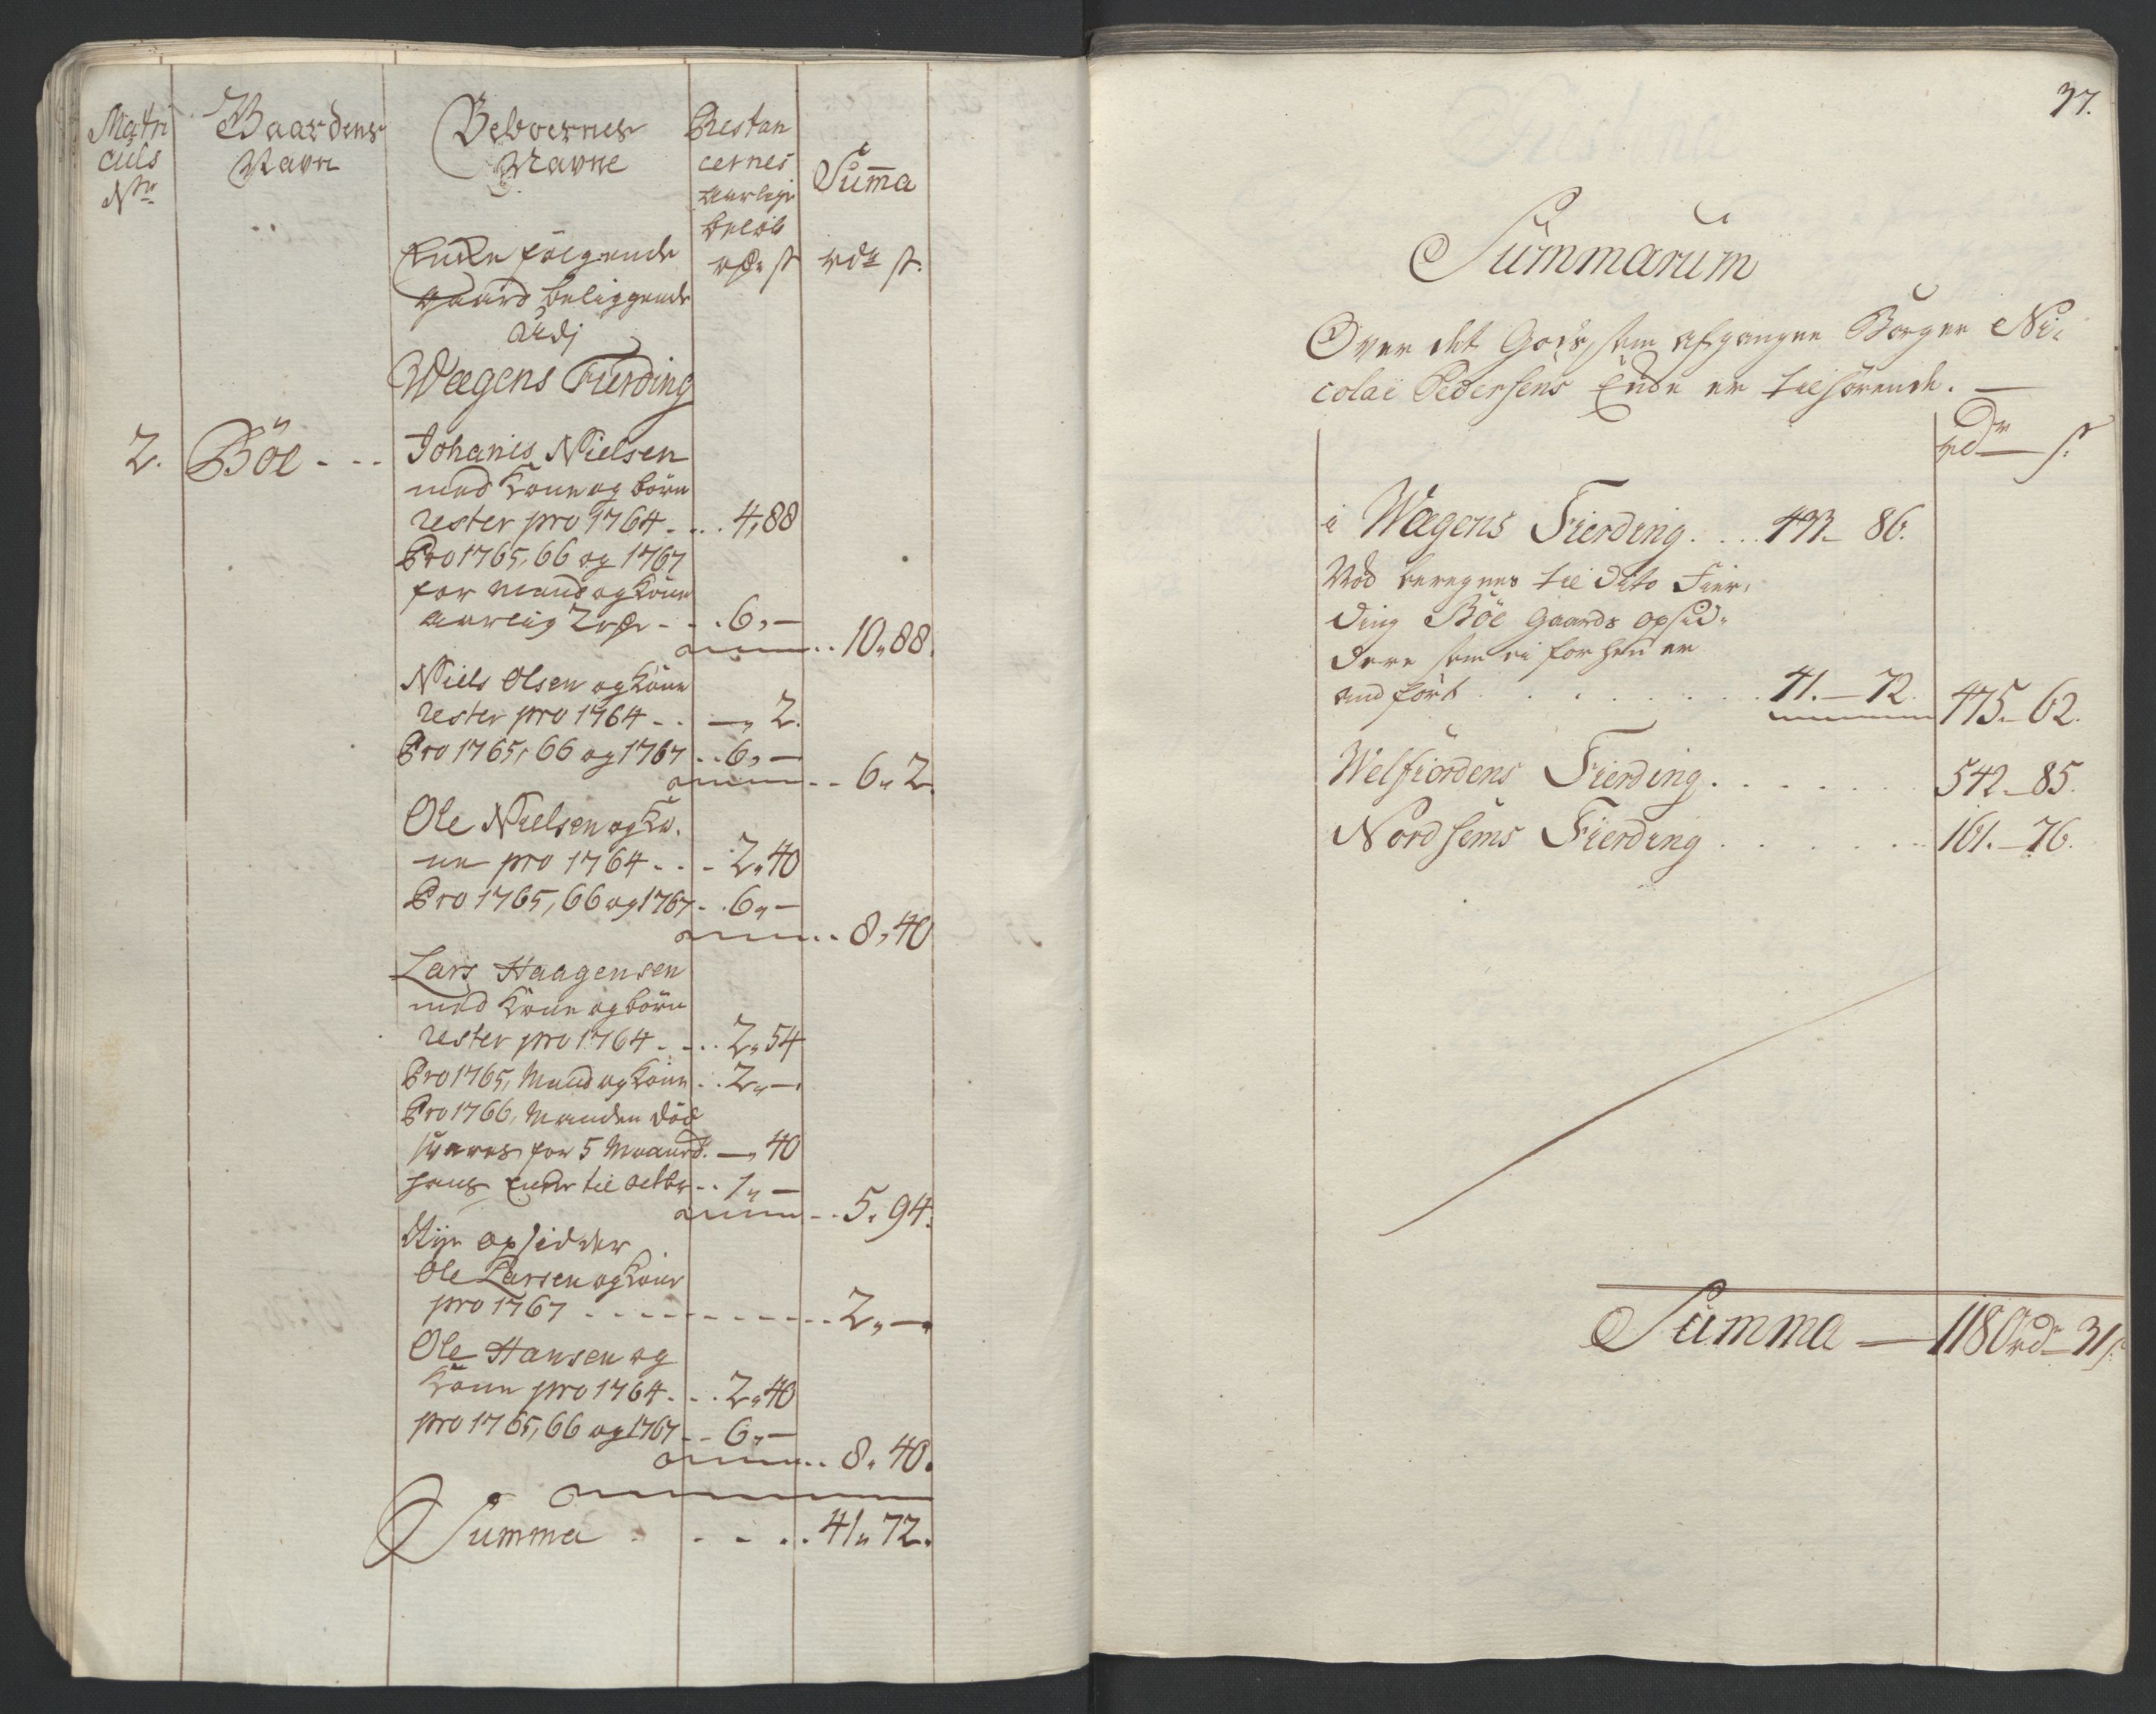 Matri
culs
Nr.
Gaardens
Navn
Beboernes
Navne
Restan
cernes
aarlige
beløb
rdr s
Summa
rdr s.
Endnu følgende
gaard beliggende
udj
Wægens Fierding
2. Böe - - -
Johanes Nielsen
med Kone og børn
rester pro 1764 - . . . 4,88
Pro 1765, 66 og 1767
for Mand og Kone
aarlig 2 rdr - . . 6, —
10„88.
Niels Olsen og Kone
rester pro 1764 - . —„ 2.
Pro 1765, 66 og 1767 . . 6, —
- - 6„ 2.
Ole Nielsen og Ko„
ne pro 1764 - . - 2„40
Pro 1765, 66 og 1767 - . 6„ —
. . 8, 40
Lars Haagensen
med Kone og børn
rester pro 1764 - - . . 2„54
Pro 1765, Mand og Kone . . 2„ —.
Pro 1766, Manden död
svares for 5 Maand. —„ 40
hans Enke til - . 1„ —
- - 5. 94.
Nye opsidder
Ole Larsen og Kone
pro 1767 - - - - - - - - - 2„ —.
Ole Hansen og
Kone pro 1764 - . . 2„40
pro 1765, 66 og 1767 - - 6„ —
. . 8. 40.
Summa . . - . . 41„ 72.
37.
Summarum
Over det Gods, som afgangne Borger Ni„
colai Pedersens Enke er tilhørende. —
rdr s.
i Wægens Fierding . . . . 433 — 86.
Nod beregnes til dito Fier„
ding Böe Gaards opsid„
dere som ei forhen er
andført . . . . . . . 41. — 72. 475 — 62.
Welfiordens Fierding . . . . . . 542 — 85.
Nordhems Fierding . . . . . . 161. — 76.
Summa — 1180 rdr 31 s.